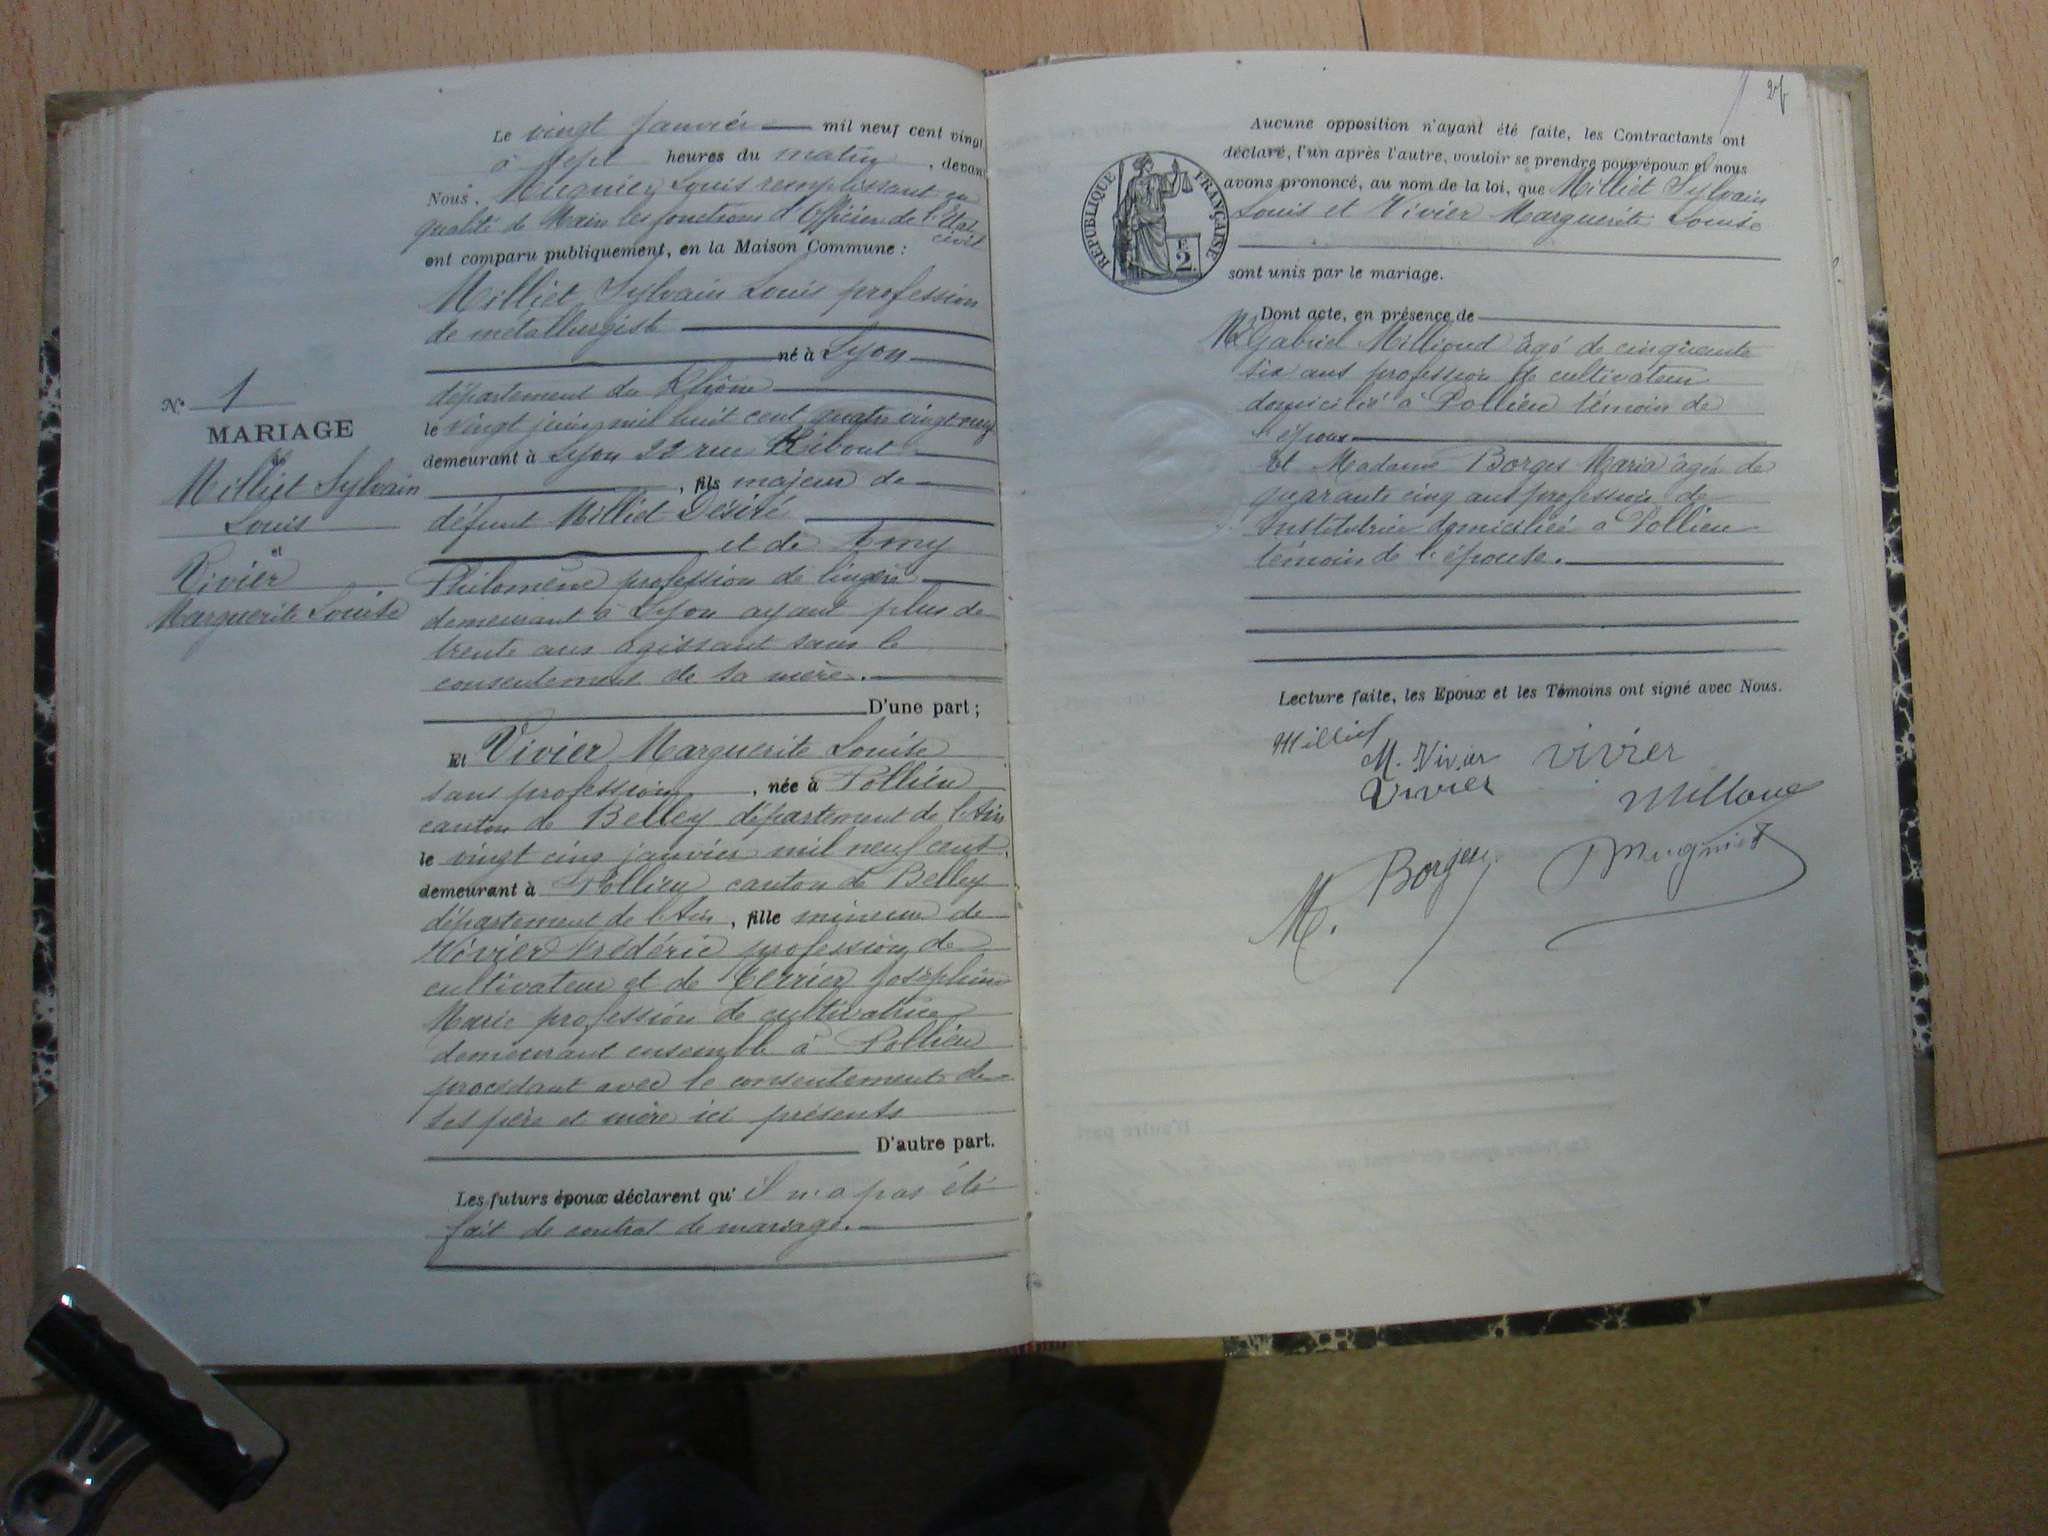 Le vingt janvier mil neuf cent vingt
à sept heures du matin, devant
Nous, Mugnier Louis remplissant en
qualité de Maire les fonctions d'Officier de l'Etat
civil
ont comparu publiquement, en la Maison Commune :
Milliet Sylvain Louis profession
de métallurgiste
né à Lyon
département du Rhône
le vingt juin mil huit cent quatre vingt neuf
demeurant à Lyon 22 rue
, fils majeur de
défunt Milliet Désiré
et de
Philomène profession de lingère
demeurant à Lyon ayant plus de
trente ans agissant sans le
consentement de sa mère.
D'une part ;
Et Vivier Marguerite Louise
sans profession, née à Pollieu
canton de Belley département de l'Ain
le vingt cinq janvier mil neuf cent,
demeurant à Pollieu canton de Belley
département de l'Ain, fille mineure de
Vivier Frédéric profession de
cultivateur et de Terrier Joséphine
Marie profession de cultivatrice
demeurant ensemble à Pollieu
procédant avec le consentement de
ses père et mère ici présents
D'autre part.
Les futurs époux déclarent qu'il n'a pas été
fait de contrat de mariage.
N° 1
MARIAGE
de
Milliet Sylvain
Louis
et
Vivier
Marguerite Louise
Aucune opposition n'ayant été faite, les Contractants ont
déclaré, l'un après l'autre, vouloir se prendre pour époux et nous
avons prononcé, au nom de la loi, que Milliet Sylvain
Louis et Vivier Marguerite Louise
sont unis par le mariage.
RÉPUBLIQUE FRANÇAISE
2 F
Dont acte, en présence de
Mr Gabriel Millioud âgé de cinquante
six ans profession de cultivateur
domicilié à Pollieu témoin de
l'époux
Et Madame Borges Maria âgée de
quarante cinq ans profession de
Institutrice domiciliée à Pollieu
témoin de l'épouse.
Lecture faite, les Epoux et les Témoins ont signé avec Nous.
Milliet
M. Vivier Vivier
Vivier
M. Borges Mugnier